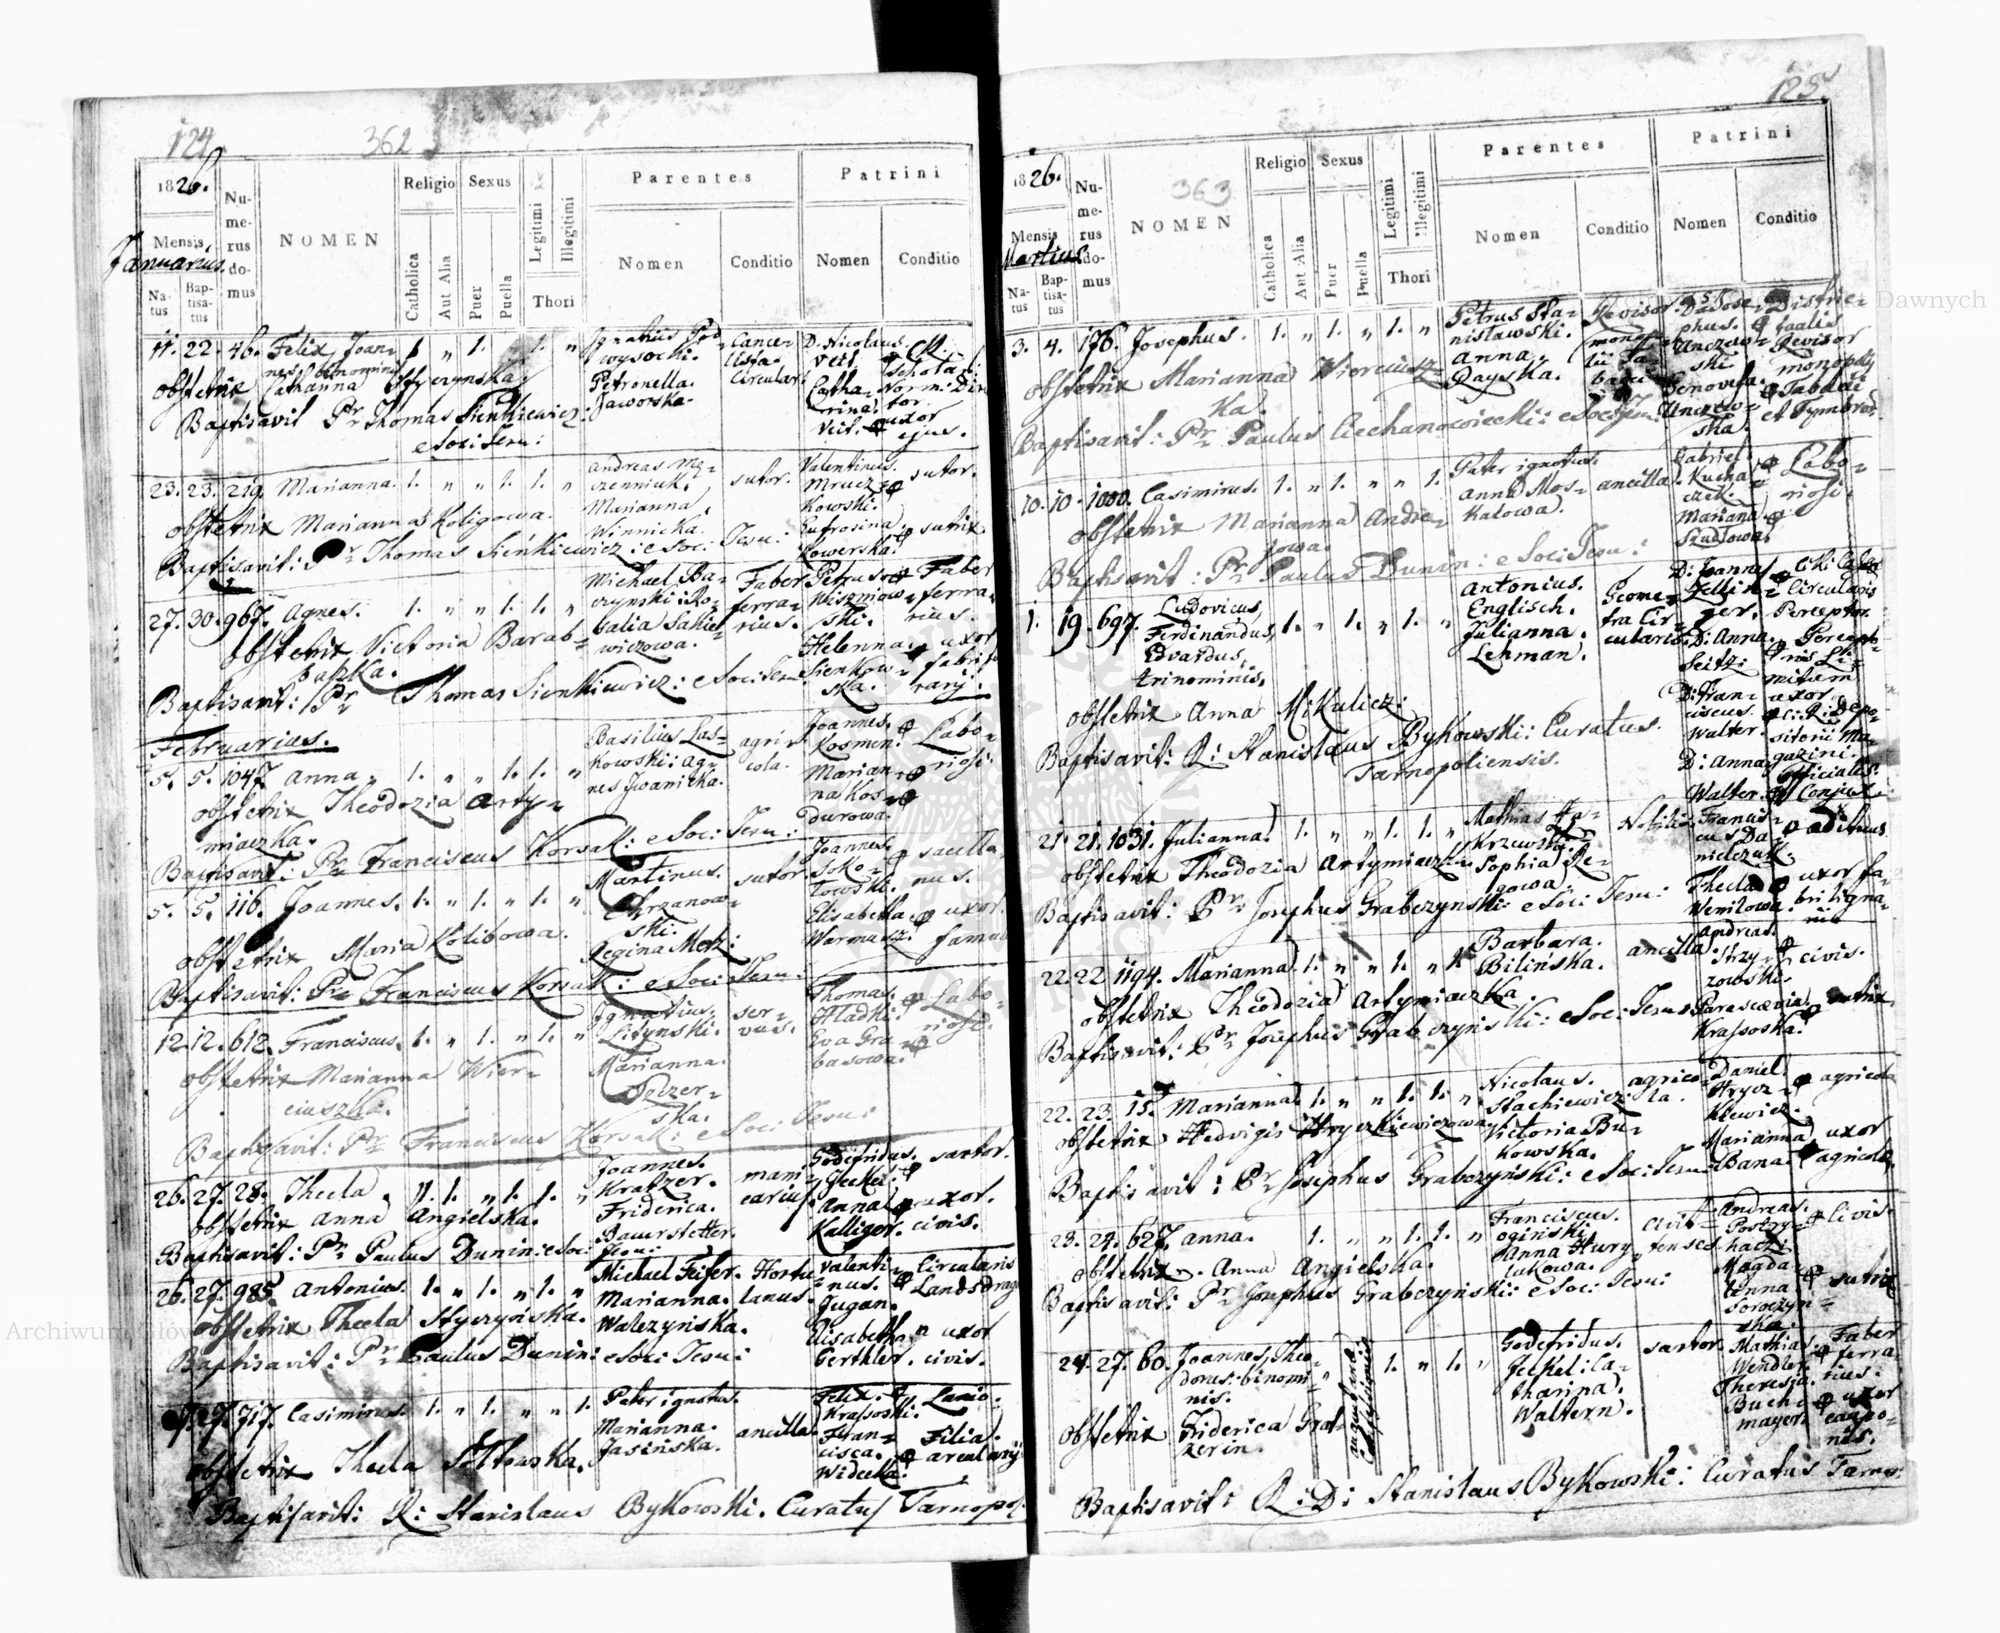 124.
362
1826.
Mensis
Januarius.
Natus
Baptisatus
Numerus domus
NOMEN
Religio
Catholica
Aut Alia
Sexus
Puer
Puella
Legitimi
Illegitimi
Thori
Parentes
Nomen
Conditio
Patrini
Nomen
Conditio
11. 22. 46. Felix, Joannes binominus 1. „ 1. 1. „
Ignatius Podwysocki.
Petronella.
Jaworska.
Cancelista
Circular:
D. Nicolaus
Veit.
Catharina
Veit.
Schola:
Norm: Director
uxor
ejus.
obstetrix Catharina Styczynska
Baptisavit Pr Thomas Sienkiewicz:
e Soc: Jesu:
23. 23. 219. Marianna. 1. „ „ 1. 1. „
Marianna
Winnicka.
sutor.
Valentinus.
Mruczkowski.
Eufrosina
Kowerska.
sutor.
sutrix
obstetrix Marianna Koligowa.
Baptisavit: Pr Thomas Sieńkiewicz: e Soc: Jesu:
27. 30. 967. Agnes. 1. „ „ 1. 1. „
Michael Baczynski: Rosalia Sakiewiczowa.
Faber ferrarius.
Petrus
Wiszniowski.
Helenna
Sienkowska.
Faber ferrarius.
uxor
fabri ferrarij:
obstetrix Victoria Barabuszka.
Baptisavit: Pr Thomas Sienkiewicz: e Soc: Jesu:
Februarius.
5. 5. 1047. Anna. 1. „ „ 1. 1. „
Basilius Laskowski: Agnes Jwanicka.
agricola.
Joannes.
Kosmen:
Marianna Kosdurowa.
Laboriosi.
obstetrix Theodozia Artymiaczka.
Baptisavit: Pr Franciscus Korsak: e Soc: Jesu:
5. 5. 116. Joannes. 1. „ 1. „ 1. „
Martinus.
Chrzanowski.
Regina Metz:
sutor.
Joannes.
Sokołowski.
Elisabetha.
Warmusz.
sacellanus.
uxor
famuli
obstetrix Maria Kolibowa.
Baptisavit: Pr Franciscus Korsak: e Soc: Jesu:
12. 12. 612. Franciscus. 1. „ 1. „ 1. „
Ignatius.
Marianna.
servus.
Thomas.
Hladki.
Eva Grabasowa.
Laboriosi.
obstetrix Marianna Wierciuszka.
Baptisavit: Pr Franciscus Korsak: e Soc: Jesu:
26. 27. 28. Thecla. 1. 1. „ 1. 1. „
Joannes.
Kratzer.
Friderica.
Bauerstetter.
Godefridus.
Jeckel:
Anna
Kalliger.
sartor.
uxor.
civis.
obstetrix Anna Angielska.
Baptisavit: Pr Paulus Dunin: e Soc: Jesu:
26. 27. 985. Antonius. 1. „ 1. „ 1. „
Michael Feifer.
Marianna.
Walczyńska.
Hortulanus.
Valentinus.
Jugan.
Elisabetha
Gerthler.
Circularis
uxor
civis.
obstetrix Thecla Styczyńska.
Baptisavit: Pr Paulus Dunin: e Soc: Jesu:
27. 717. Casimirus. 1. „ 1. „ „ 1.
Pater ignotus.
Marianna.
Jasińska.
ancilla.
Felix.
Krassoski.
Francisca.
Widecka.
Lanio.
Filia
arcularij
obstetrix Thecla
Baptisavit: R: Stanislaus Bykowski. Curatus Tarnopol:
125.
363
1826.
Mensis
Martius.
Natus
Baptisatus
Numerus domus
NOMEN
Religio
Catholica
Aut Alia
Sexus
Puer
Puella
Legitimi
Illegitimi
Thori
Parentes
Nomen
Conditio
Patrini
Nomen
Conditio
3. 4. 176. Josephus. 1. „ 1. „ 1. „
Petrus Stanisławski.
Anna
Rayska.
Revisor
Josephus.
Unczowski
Genovefa.
Revisor
monopolij
Tabaci
obstetrix Marianna Wierciuszka.
Baptisavit: Pr Paulus Ciechanowiecki: e Soc: Jesu:
10. 10. 1000. Casimirus. 1. „ 1. „ „ 1.
Pater ignotus.
Anna Moskalowa.
ancilla.
Gabriel.
Kuchaczek.
Mariana.
Szudlowa.
Laboriosi.
obstetrix Marianna Andrejowa.
Baptisavit: Pr Paulus Dunin: e Soc: Jesu:
1. 19. 697. Ludovicus, Ferdinandus, Edvardus, trinominis. 1. „ 1. „ 1. „
Antonius.
Englisch.
Julianna.
Lehman.
Geometra Circularis.
D: Joannes
D: Anna.
Seitz:
D: Franciscus.
Walter.
D: Anna
Walter.
Circularis
Perceptor.
uxor.
officialis.
Conjux.
obstetrix Anna Mikulicz:
Baptisavit: R: Stanislaus Bykowski: Curatus
Tarnopoliensis.
21. 21. 1031. Julianna. 1. „ „ 1. 1. „
Mathias Zakrzewski.
Sophia Regowa.
Nobilis
Franciscus Danielczuk.
Thecla
aedituus.
uxor fabri lignarii
obstetrix Theodozia Artymiaczka.
Baptisavit: Pr Josephus Grabczynski: e Soc: Jesu:
22. 22. 1194. Marianna. 1. „ „ 1. „ 1.
Barbara.
Bilińska.
ancilla.
Andreas.
Strzyzowski.
Parascevia
Krassoska.
civis.
sutrix
obstetrix Theodozia Artymiaczka
Baptisavit: Pr Josephus Grabczynski: e Soc: Jesu
22. 23. 15. Marianna. 1. „ „ 1. 1. „
Nicolaus.
Stachiewicz:
Victoria Bukowska.
agricola.
Daniel.
Hryczkiewicz.
Marianna
Bana.
agricola
uxor
agricola
obstetrix Hedvigis Hryczkiewiczowa
Baptisavit: Pr Josephus Grabczyński: e Soc: Jesu:
23. 24. 627. Anna. 1. „ „ 1. 1. „
Franciscus.
Ogiński.
Anna Hurylukowa.
Andreas.
Magdalenna
civis.
sutrix
obstetrix Anna Angielska.
Baptisavit: Pr Josephus Grabczyński: e Soc: Jesu:
24. 27. 60. Joannes, Theodorus: binominis. 1. „ 1. „
Godefridus.
Jeckel: Catharina
Waltern.
sartor.
Mathias.
Wendler.
Theresia.
Buchmayer.
Faber ferrarius.
uxor
cauponis.
obstetrix Friderica Gratzerin.
Baptisavit: R: D: Stanislaus Bykowski: Curatus Tarnop:
Archiwum Główne Akt Dawnych